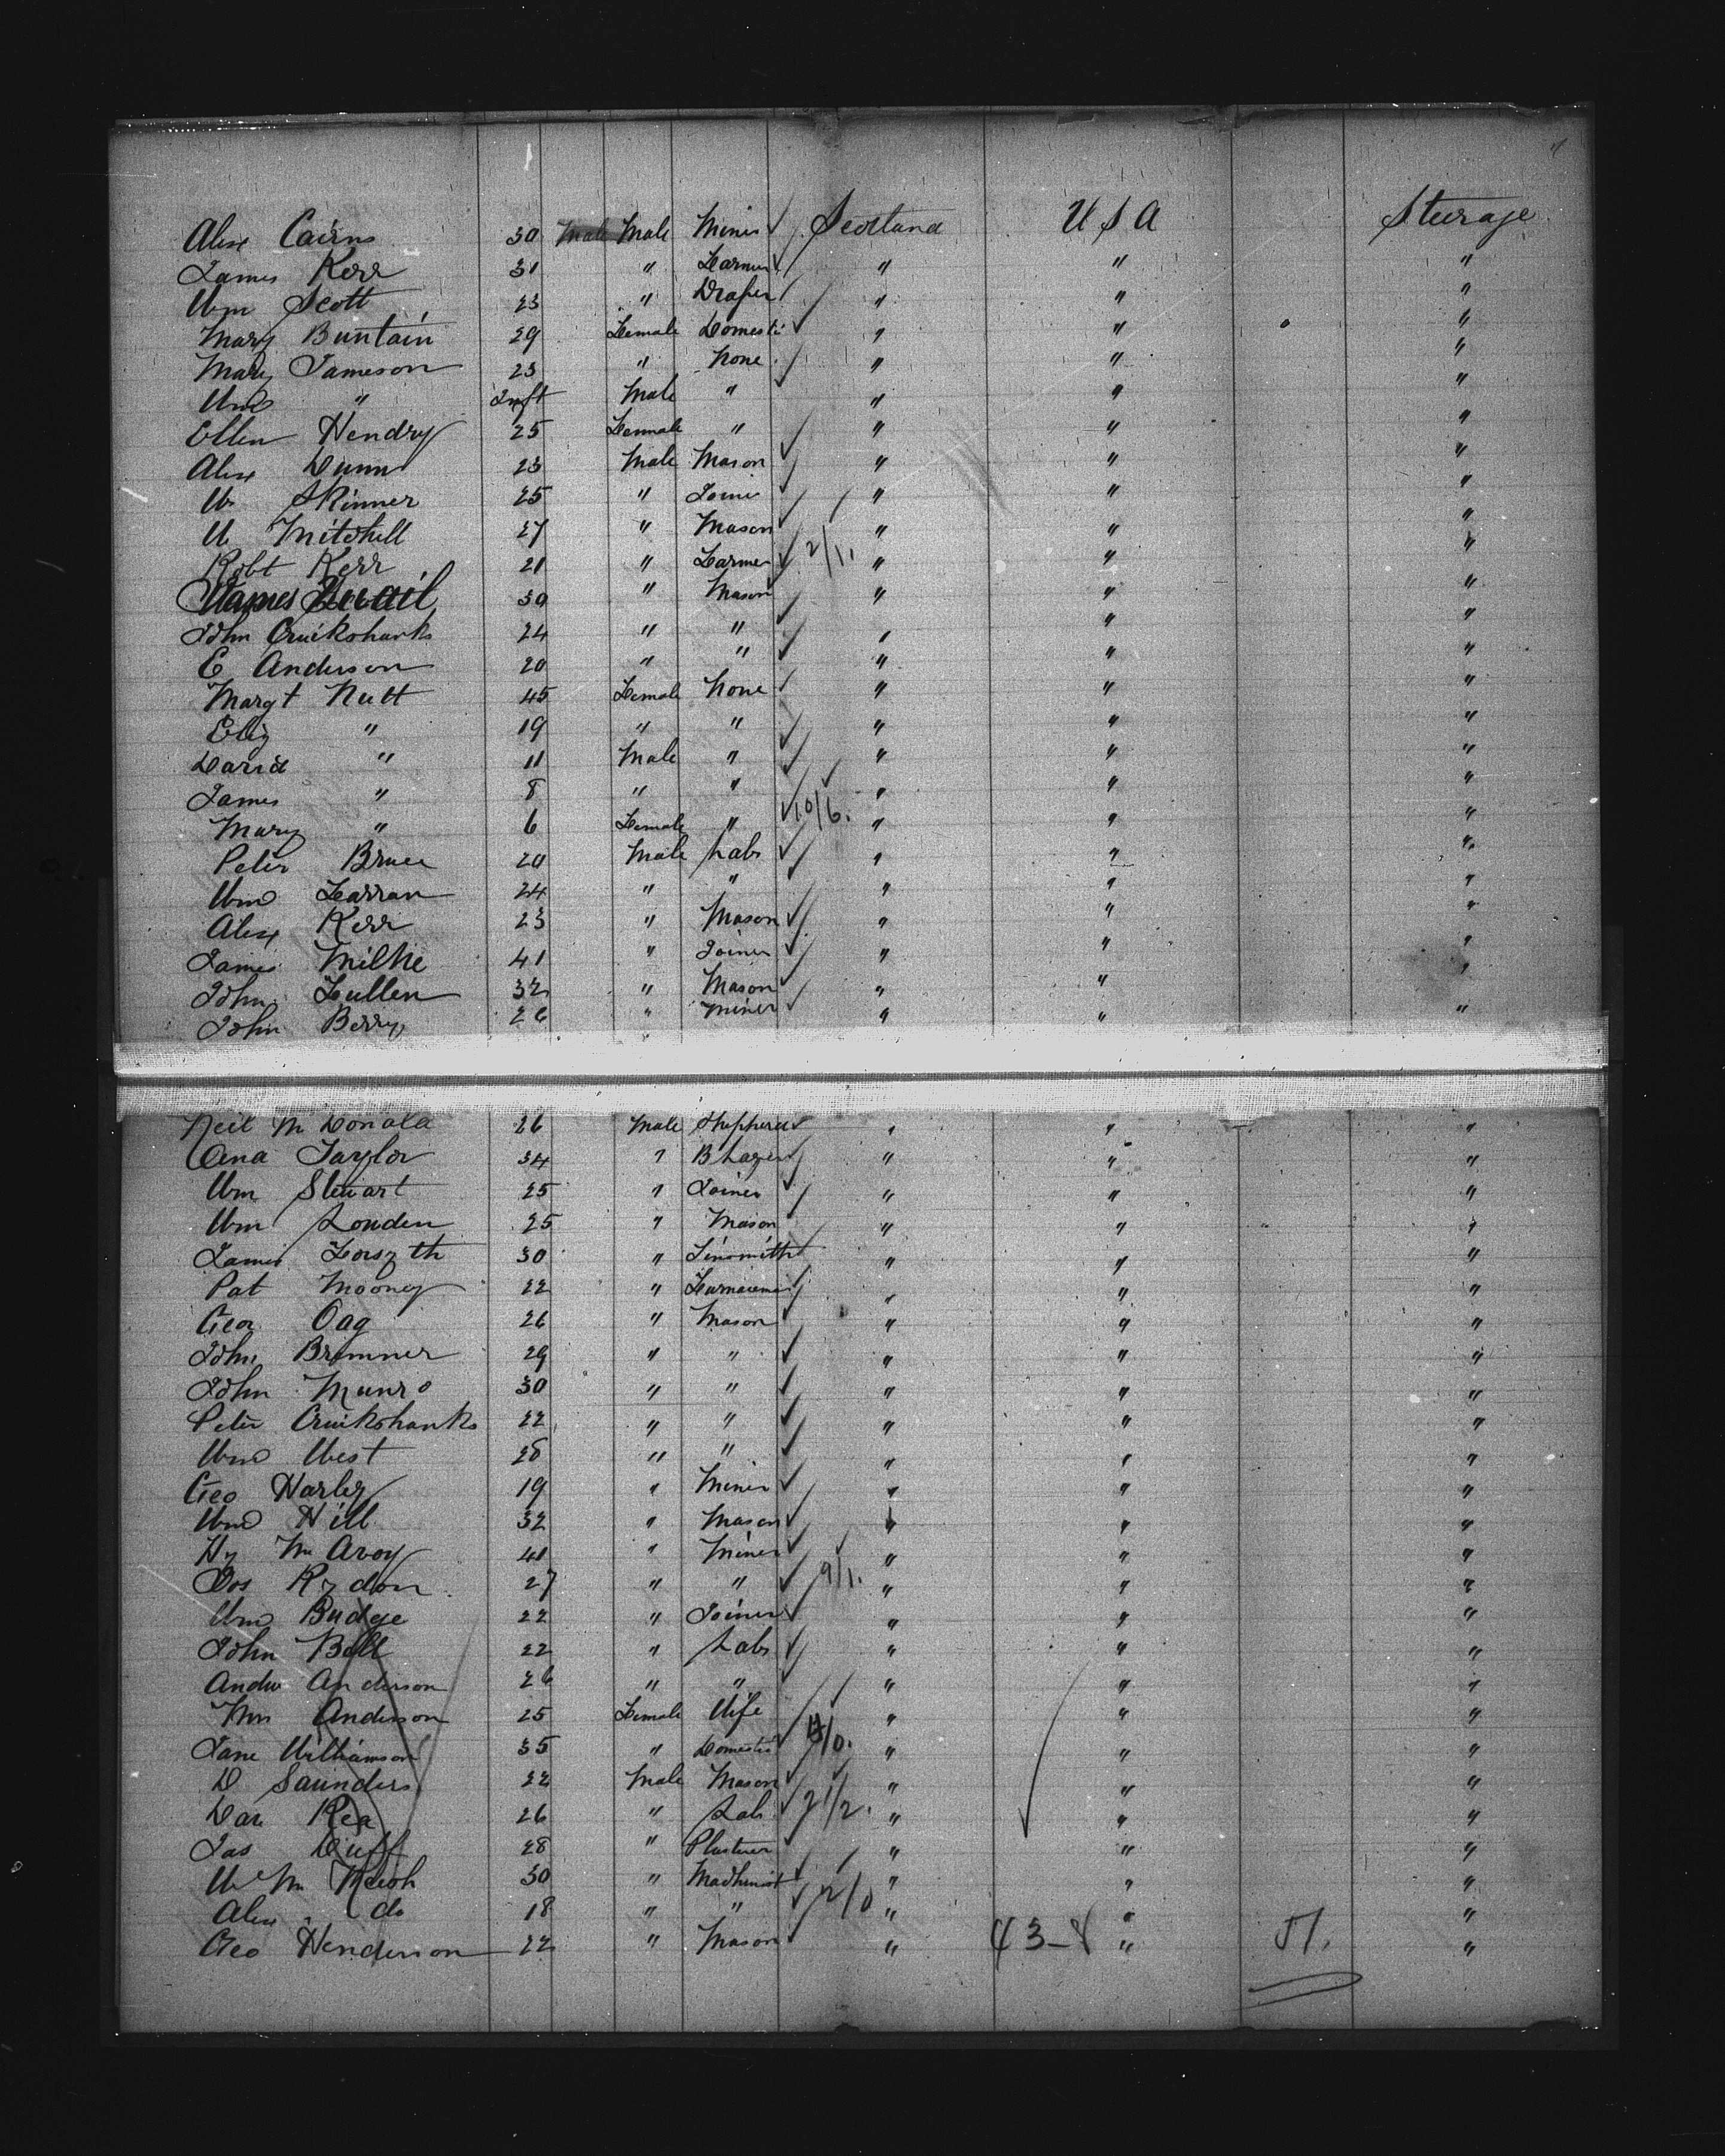 Alex Cairns 30 Male Male Miner Scotland U S A Steerage
James Kerr 31 " Farmer " " "
Wm Scott 23 " Draper " " "
Mary Buntain 29 Female Domestic " " "
Mary Jameson 23 " None " " "
Wm " Inft Male " " " "
Ellen Hendry 25 Female " " " "
Alex Dunn 23 Male Mason " " "
W Skinner 25 " Joiner " " "
W Mitchell 27 " Mason " " "
Robt Kerr 21 " Farmer 2/1. " " "
James 30 " Mason " " "
John Cruikshanks 24 " " " " "
E Anderson 20 " " " " "
Margt Nutt 45 Female None " " "
Eliz " 19 " " " " "
David " 11 Male " " " "
James " 8 " " " " "
Mary " 6 Female " 10/6. " " "
Peter Bruce 20 Male Labr " " "
Wm Farran 24 " " " " "
Alex Kerr 23 " Mason " " "
James Milne 41 " Joiner " " "
John Fullen 32 " Mason " " "
John Berry 26 " Miner " " "
Neil Mc Donald 26 Male Shepherd " " "
Taylor 34 " B Layer " " "
Wm Stewart 25 " Joiner " " "
Wm Louden 25 " Mason " " "
James Forsyth 30 " Tinsmith " " "
Pat Mooney 22 " Furnaceman " " "
Geo Oag 26 " Mason " " "
John Bremner 29 " " " " "
John Munro 30 " " " " "
Peter Cruikshanks 22 " " " " "
Wm West 28 " " " " "
Geo Harley 19 " Miner " " "
Wm Hill 32 " Mason " " "
Hy Mc Avoy 41 " Miner " " "
Jos Rydon 27 " " 9/1. " " "
Wm Budge 22 " Joiner " " "
John Bell 22 " Labr " " "
Andw Anderson 26 " " " " "
Mrs Anderson 25 Female Wife " " "
Jane Williamson 35 " Domestic /0. " " "
D Saunders 22 Male Mason " " "
Dan Rea 26 " Labr 2 1/2. " " "
Jas Duff 28 " Plasterer " " "
Wm Mc 30 " Machinist " " "
Alex do 18 " " 2/0 " " "
Geo Henderson 22 " Mason " 43-8 " 51. "